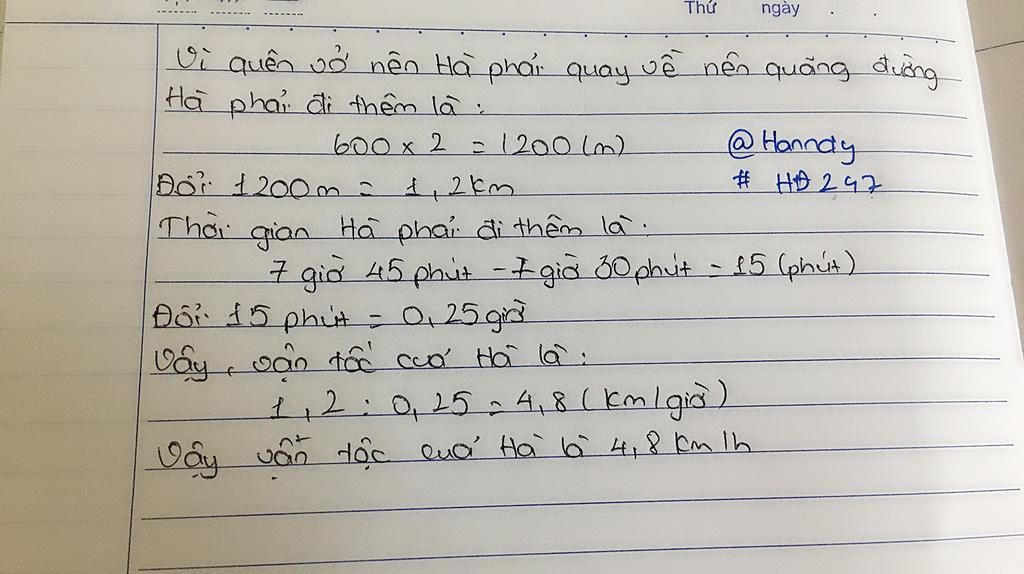 Thứ ngày
Vì quên vở nên Hà phải quay về nên quãng đường
Hà phải đi thêm là:
600 x 2 = 1200 (m)
@Hanndy
Đổi 1200m = 1,2km
# HĐ 247
Thời gian Hà phải đi thêm là:
7 giờ 45 phút - 7 giờ 30 phút = 15 (phút)
Đổi 15 phút = 0,25 giờ
Vậy, vận tốc cuả Hà là:
1,2 : 0,25 = 4,8 (km/giờ)
Vậy vận tốc cuả Hà là 4,8 km/h